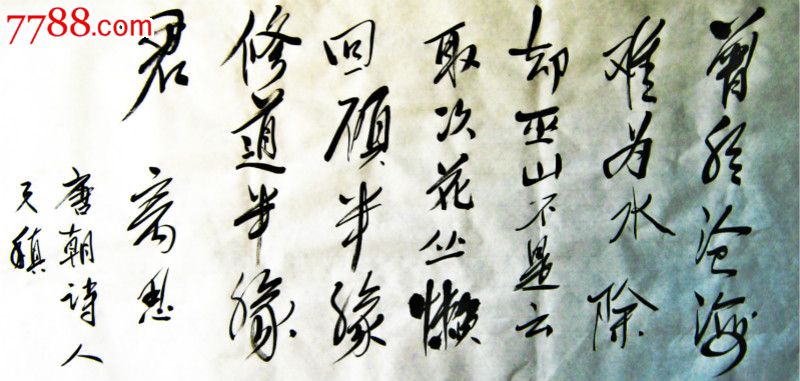 曾经沧海
难为水除
却巫山不是云
取次花丛懒
回顾半缘
修道半缘
君 离思
唐朝诗人
元稹
7788.com